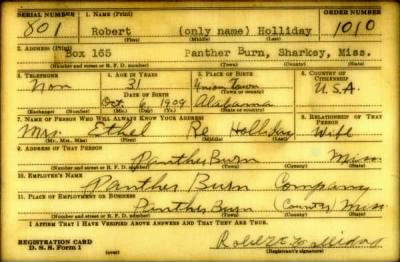 SERIAL NUMBER 1. NAME (Print) ORDER NUMBER
801 Robert (only name) Holliday 1010
(First) (Middle) (Last)
2. ADDRESS (Print)
Box 165 Panther Burn, Sharkey, Miss.
(Number and street or R. F. D. number) (Town) (County) (State)
3. TELEPHONE 4. AGE IN YEARS 5. PLACE OF BIRTH 6. COUNTRY OF CITIZENSHIP
Non 31 Union Town U.S.A.
DATE OF BIRTH (Town or county)
Oct. 6 1909 Alabama
(Exchange) (Number) (Mo.) (Day) (Yr.) (State or country)
7. NAME OF PERSON WHO WILL ALWAYS KNOW YOUR ADDRESS 8. RELATIONSHIP OF THAT PERSON
Mrs. Ethel Re Holliday Wife
(Mr., Mrs., Miss) (First) (Middle) (Last)
9. ADDRESS OF THAT PERSON
Panther Burn Miss.
(Number and street or R. F. D. number) (Town) (County) (State)
10. EMPLOYER'S NAME
Panther Burn Company
11. PLACE OF EMPLOYMENT OR BUSINESS
Panther Burn (County) Miss
(Number and street or R. F. D. number) (Town) (State)
I AFFIRM THAT I HAVE VERIFIED ABOVE ANSWERS AND THAT THEY ARE TRUE.
REGISTRATION CARD Robert Holliday
D. S. S. Form 1 (over) (Registrant's signature)